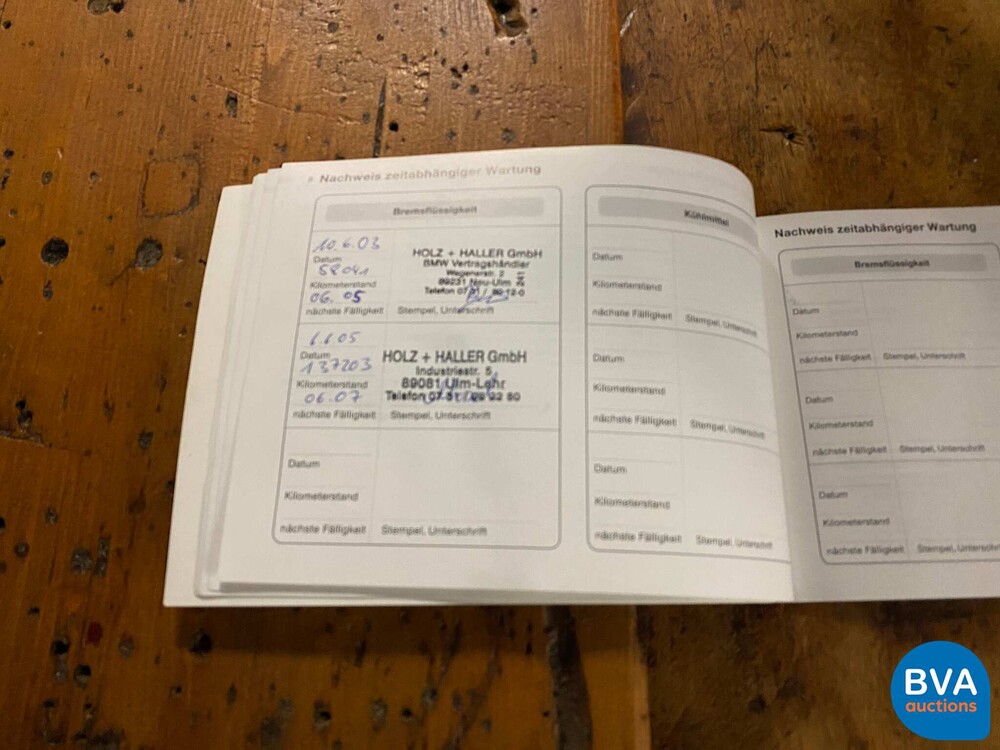 Nachweis zeitabhängiger Wartung
Bremsflüssigkeit
10.6.03
Datum
58041
Kilometerstand
06.05
nächste Fälligkeit
HOLZ + HALLER GmbH
BMW Vertragshändler
Wegenerstr. 2
89231 Neu-Ulm
Telefon
Stempel, Unterschrift
Datum
137203
Kilometerstand
06.07
nächste Fälligkeit
HOLZ + HALLER GmbH
Industriestr. 5
89081 Ulm-Lehr
Telefon
Stempel, Unterschrift
Datum
Kilometerstand
nächste Fälligkeit
Stempel, Unterschrift
Kühlmittel
Datum
Kilometerstand
nächste Fälligkeit
Stempel, Unterschrift
Datum
Kilometerstand
nächste Fälligkeit
Stempel, Unterschrift
Datum
Kilometerstand
nächste Fälligkeit
Stempel, Unterschrift
Nachweis zeitabhängiger Wartung
Bremsflüssigkeit
Datum
Kilometerstand
nächste Fälligkeit
Stempel, Unterschrift
Datum
Kilometerstand
nächste Fälligkeit
Stempel, Unterschrift
Datum
Kilometerstand
nächste Fälligkeit
Stempel,
BVA
auctions